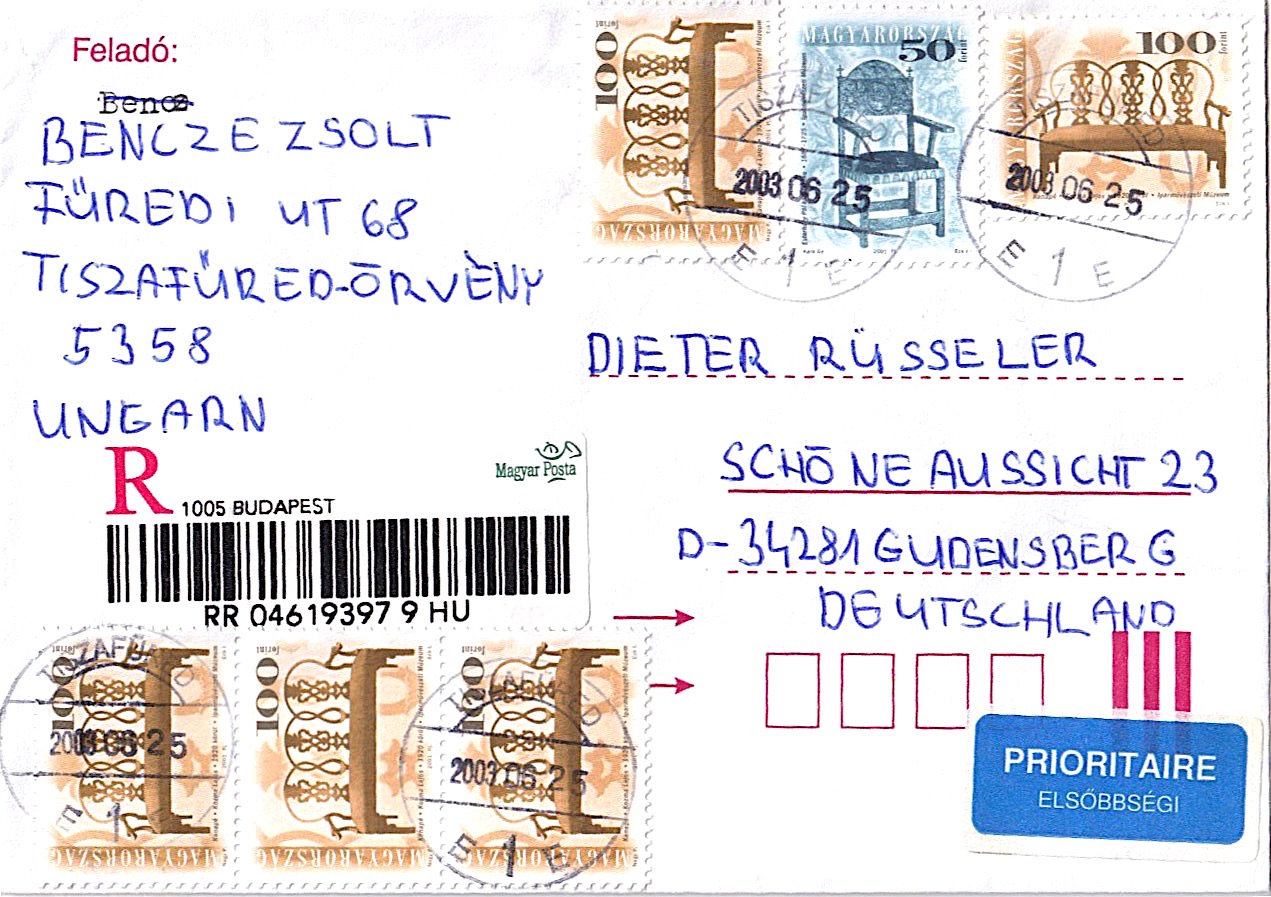 Feladó:
BENCZE ZSOLT
FŰREDI UT 68
TISZAFŰRED-ÖRVÈNY
5358
UNGARN
100 forint
MAGYARORSZÁG
MAGYARORSZÁG
50 forint
100 forint
TISZAFÜRED
2003 06 25
E 1 E
TISZAFÜRED
2003.06 25
E 1 E
DIETER RÜSSELER
SCHÖNE AUSSICHT 23
D-34281 GUDENSBERG
DEUTSCHLAND
R
1005 BUDAPEST
Magyar Posta
RR 04619397 9 HU
100 forint
MAGYARORSZÁG
100 forint
MAGYARORSZÁG
100 forint
MAGYARORSZÁG
TISZAFÜRED
2003 06 25
E 1
TISZAFÜRED
2003.06 25
E 1 E
PRIORITAIRE
ELSŐBBSÉGI